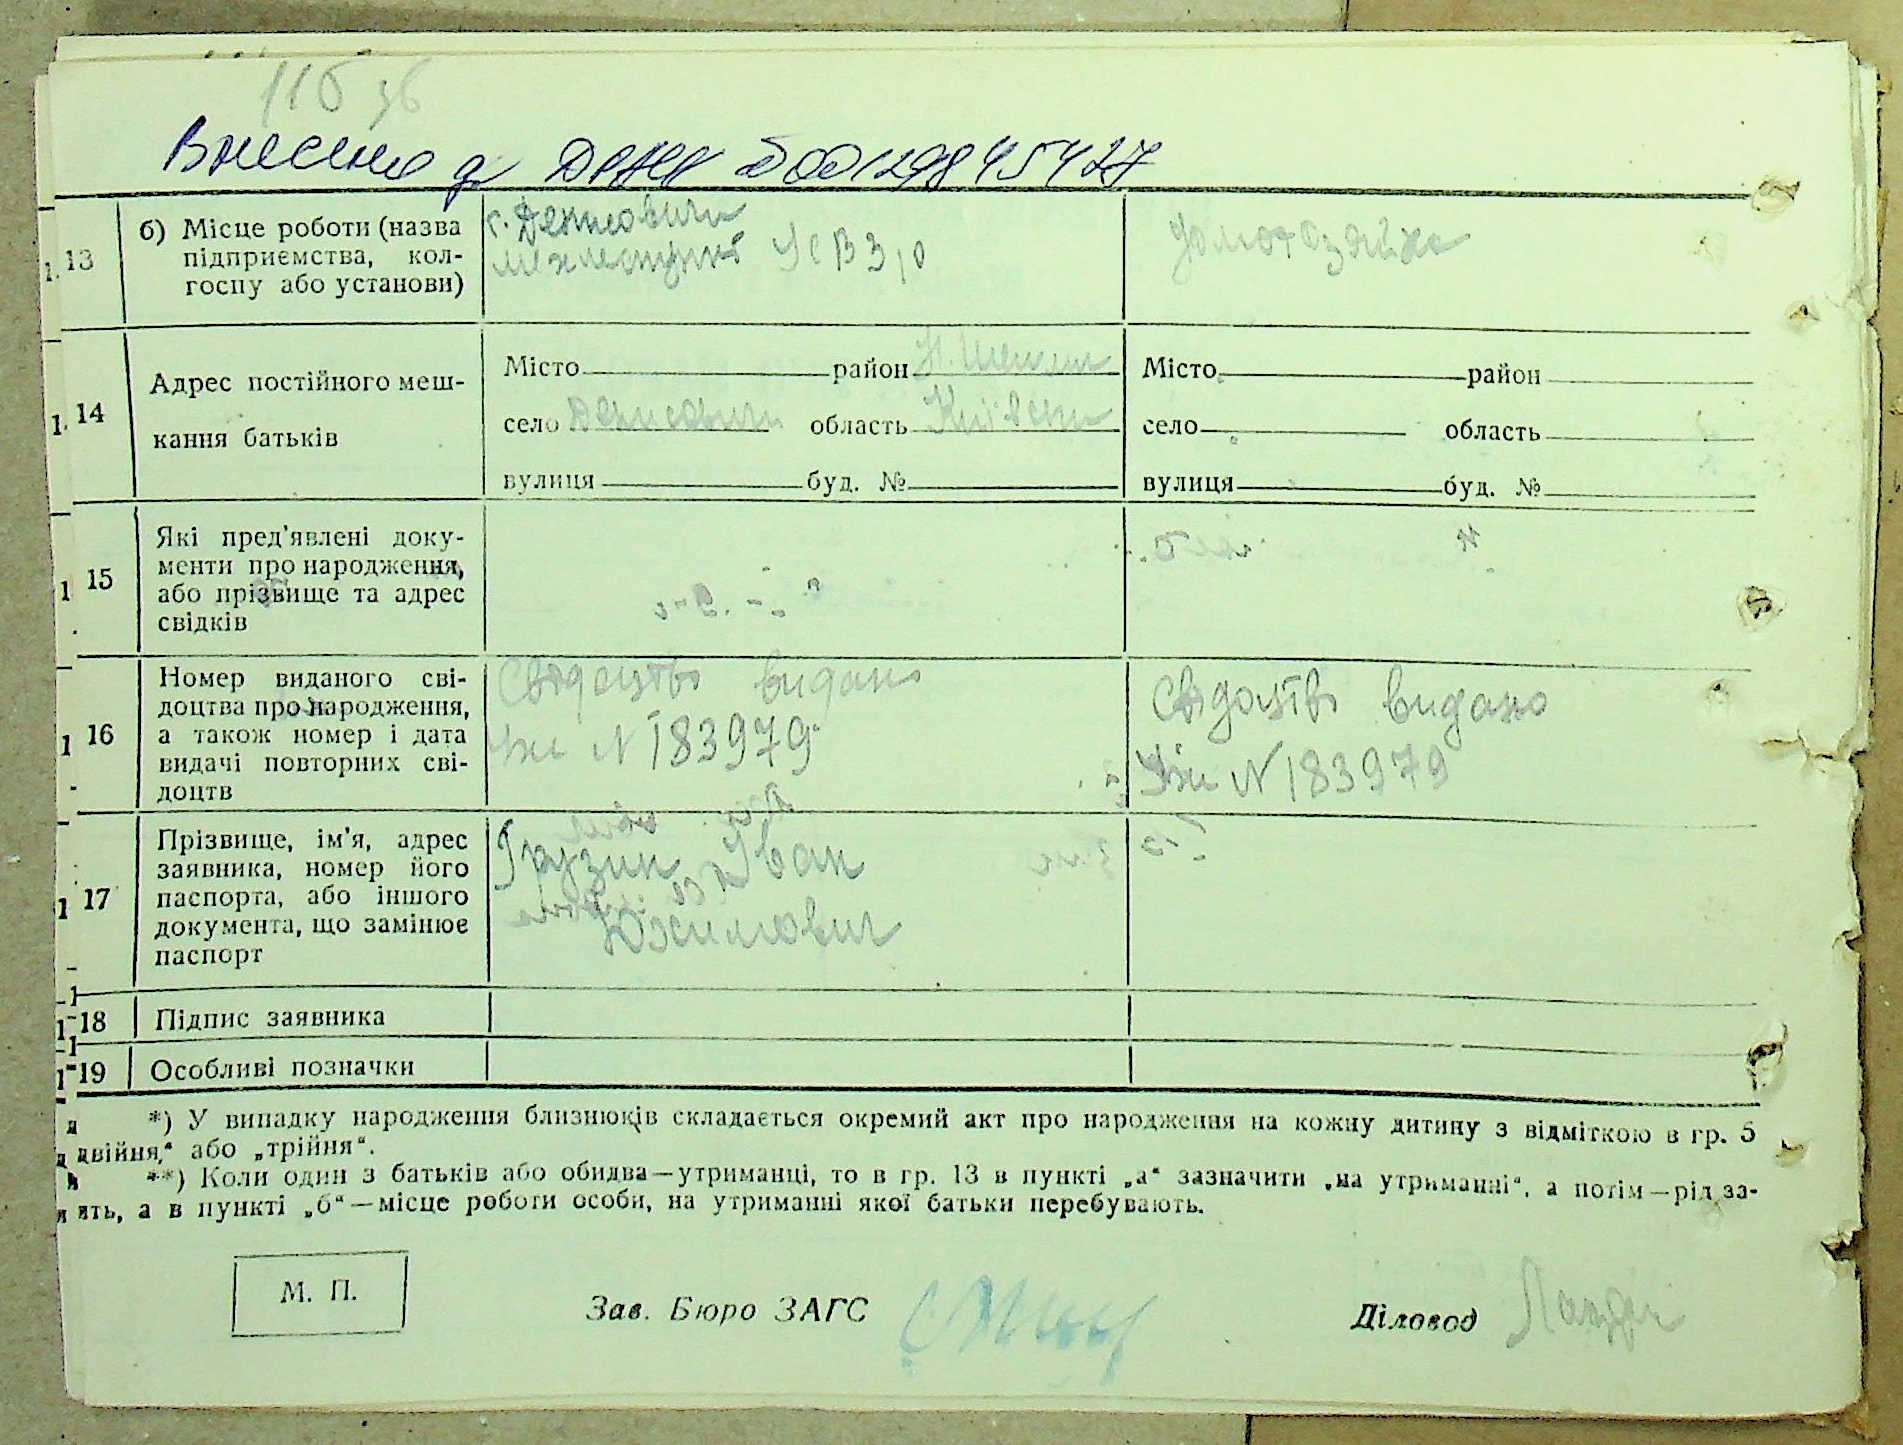 116 зв
Внесено до ДРАЦС 00129845427
13 б) Місце роботи (назва
підприємства, кол-
госпу або установи)
с. Денисовичи
домохозяйка
14 Адрес постійного меш-
кання батьків
Місто район
село Денисовичи область Київськ
вулиця буд. №
Місто район
село область
вулиця буд. №
15 Які пред'явлені доку-
менти про народження,
або прізвище та адрес
свідків
16 Номер виданого сві-
доцтва про народження,
а також номер і дата
видачі повторних сві-
доцтв
Свідоцтво видано
N 183979
Свідоцтво видано
N 183979
17 Прізвище, ім'я, адрес
заявника, номер його
паспорта, або іншого
документа, що замінює
паспорт
Грузин Іван
Юхимович
18 Підпис заявника
19 Особливі позначки
*) У випадку народження близнюків складається окремий акт про народження на кожну дитину з відміткою в гр. 5
двійня," або „трійня".
**) Коли один з батьків або обидва—утриманці, то в гр. 13 в пункті „а" зазначити „на утриманні", а потім—рід за-
ять, а в пункті „б"—місце роботи особи, на утриманні якої батьки перебувають.
М. П.
Зав. Бюро ЗАГС
Діловод